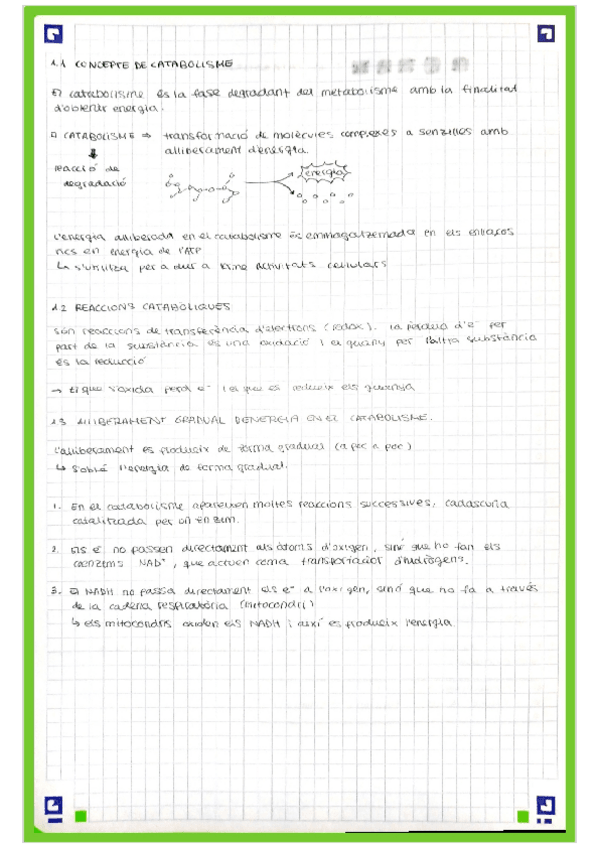 1.1 CONCEPTE DE CATABOLISME
El catabolisme és la fase degradant del metabolisme amb la finalitat
d'obtenir energia.
CATABOLISME ⇒ transformació de molècules complexes a senzilles amb
alliberament d'energia.
reacció de
degradació
energia
L'energia alliberada en el catabolisme és emmagatzemada en els enllaços
rics en energia de l'ATP
↳ s'utilitza per a dur a terme activitats cel·lulars
1.2 REACCIONS CATABÒLIQUES
Són reaccions de transferència d'electrons (redox). La pèrdua d'e⁻ per
part de la substància és una oxidació i el guany per l'altra substància
és la reducció
→ El que s'oxida perd e⁻ i el que es redueix els guanya
1.3 ALLIBERAMENT GRADUAL D'ENERGIA EN EL CATABOLISME.
L'alliberament es produeix de forma gradual (a poc a poc)
↳ S'obté l'energia de forma gradual.
1. En el catabolisme apareixen moltes reaccions successives, cadascuna
catalitzada per un enzim.
2. Els e⁻ no passen directament als àtoms d'oxigen, sinó que ho fan els
coenzims NAD⁺, que actuen coma transportador d'hidrògens.
3. El NADH no passa directament els e⁻ a l'oxigen, sinó que ho fa a través
de la cadena respiratòria (mitocondri)
↳ els mitocondris oxiden els NADH i així es produeix l'energia.